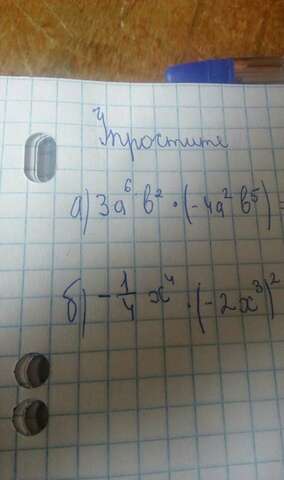 Упростите
а) 3a⁶b² · (-4a²b⁵) =
б) -1/4 x⁴ · (-2x³)²